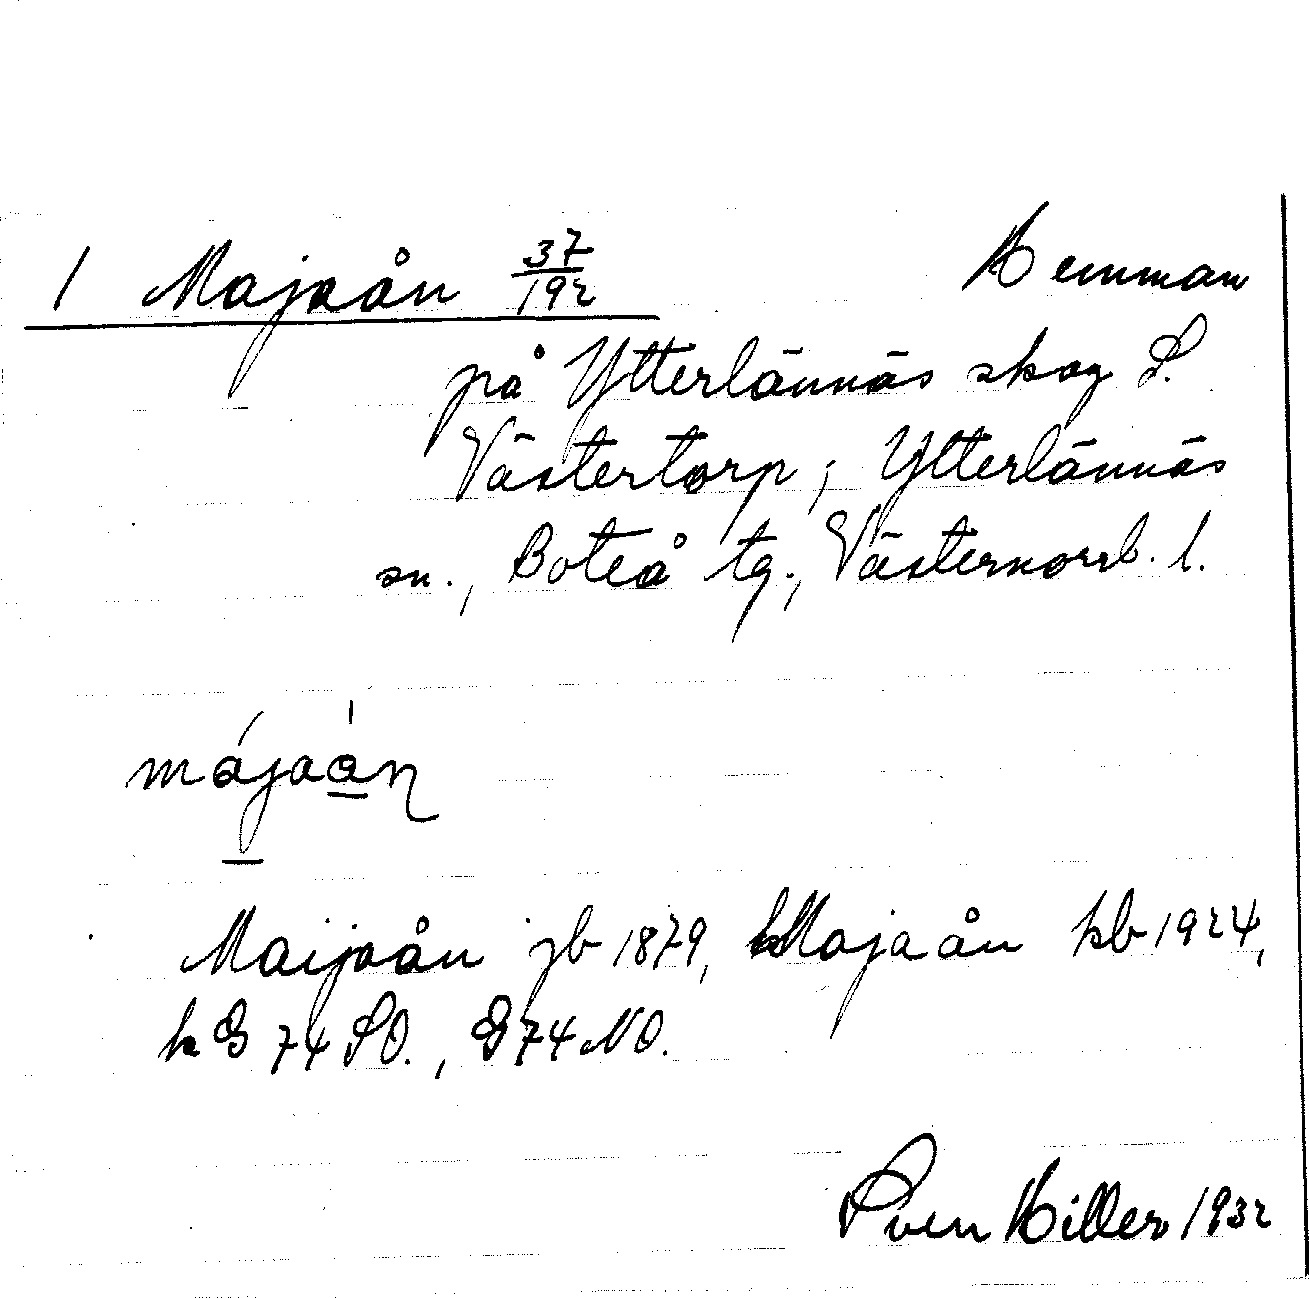 1 Majaån 37/192 Hemman
på Ytterlännäs skog S.
Västertorp, Ytterlännäs
sn., Boteå tg., Västernorrl. l.
májaån
Maijaån jb 1879, Majaån kb 1924,
k G 74 SO., G 74 NO.
Sven Hiller 1932